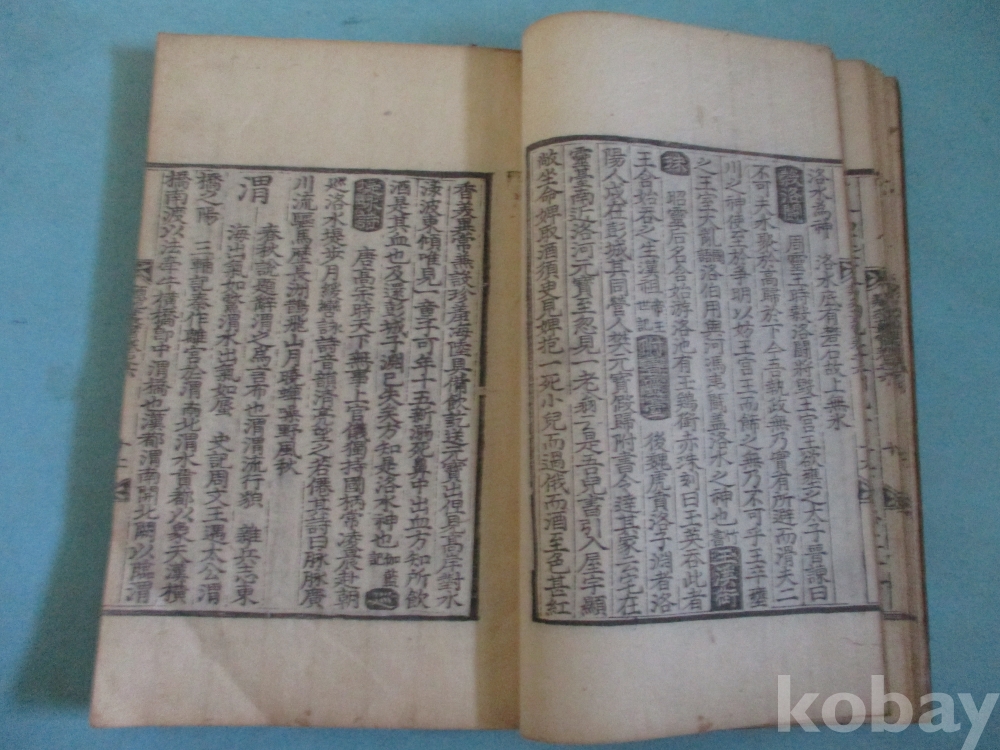 洛水爲神 洛水底有礬石故上無冰
周靈王時穀洛鬪將毀王宮王欲壅之太子晉諫曰
不可夫水聚於高歸於下今吾執政無乃實有所避而滑夫二
川之神使至於爭明以妨王宮王而飾之無乃不可乎王卒壅
之王室大亂 洛伯用與河馮夷鬪盖洛水之神也
珠 昭靈后名含始游洛池有玉鷄銜赤珠刻曰玉英吞此者
王含始吞之生漢祖 後魏虎賁洛子淵者洛
陽人戍在彭城其同營人樊元寶假歸附書今達其家云宅在
靈臺南近洛河元寶至忽見一老翁云是吾兒書引入屋宇顯
敞坐命婢取酒須臾見婢抱一死小兒而過俄而酒至色甚紅
香美異常無設珍羞海陸具備飮訖送元寶出但見高岸對水
淥波東傾唯見一童子可年十五新溺死鼻中出血方知所飮
酒是其血也及還彭城子淵已失矣方知是洛水神也
唐高宗時天下無事上官儀獨持國柄常凌晨赴朝
巡洛水堤步月徐轡詠詩音韻淸亮望之若僊其詩曰脉脉廣
川流驅馬歷長洲鵲飛山月曙蟬噪野風秋
渭 春秋說題辭渭之爲言布也渭渭流行貌 雜兵書東
海出氣如鱉渭水出氣如蜃 史記周文王遇太公渭
橋之陽 三輔記秦作離宮於渭南北渭水貫都以象天漢橫
橋南渡以法牽牛橫橋卽中渭橋也漢都渭南開北闕以臨渭
kobay